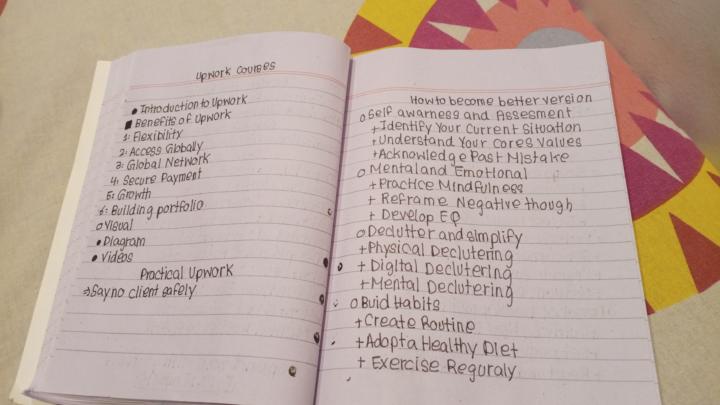 Upwork Courses
• Introduction to Upwork
■ Benefits of Upwork
1: Flexibility
2: Access Globally
3: Global Network
4: Secure Payment
5: Growth
6: Building portfolio
o Visual
• Diagram
• Videos
Practical Upwork
⇒ Say no client safely
How to become better version
o Self awarness and Assesment
+ Identify Your Current Situation
+ Understand Your Cores Values
+ Acknowledge Past Mistake
o Mental and Emotional
+ Practice Mindfulness
+ Reframe Negative though
+ Develop EQ
o Declutter and simplify
+ Physical Decluttering
+ Digital Decluttering
+ Mental Decluttering
o Buid Habits
+ Create Routine
+ Adopt a Healthy Diet
+ Exercise Reguraly